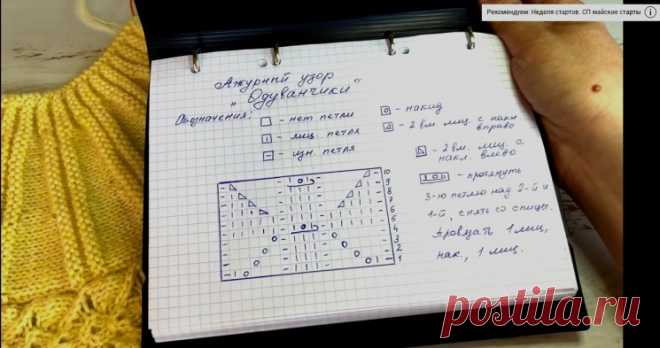 Рекомендуем: Неделя стартов. СП майские старты
Ажурный узор
"Одуванчики"
Обозначения:
- нет петли
- лиц. петля
- изн. петля
- накид
- 2 вм. лиц. с накл.
вправо
- 2 вм. лиц. с
накл. влево
- протянуть
3-ю петлю над 2-й и
1-й, снять со спицы.
Провязать 1 лиц,
нак, 1 лиц.
10
9
8
7
6
5
4
3
2
1
postila.ru